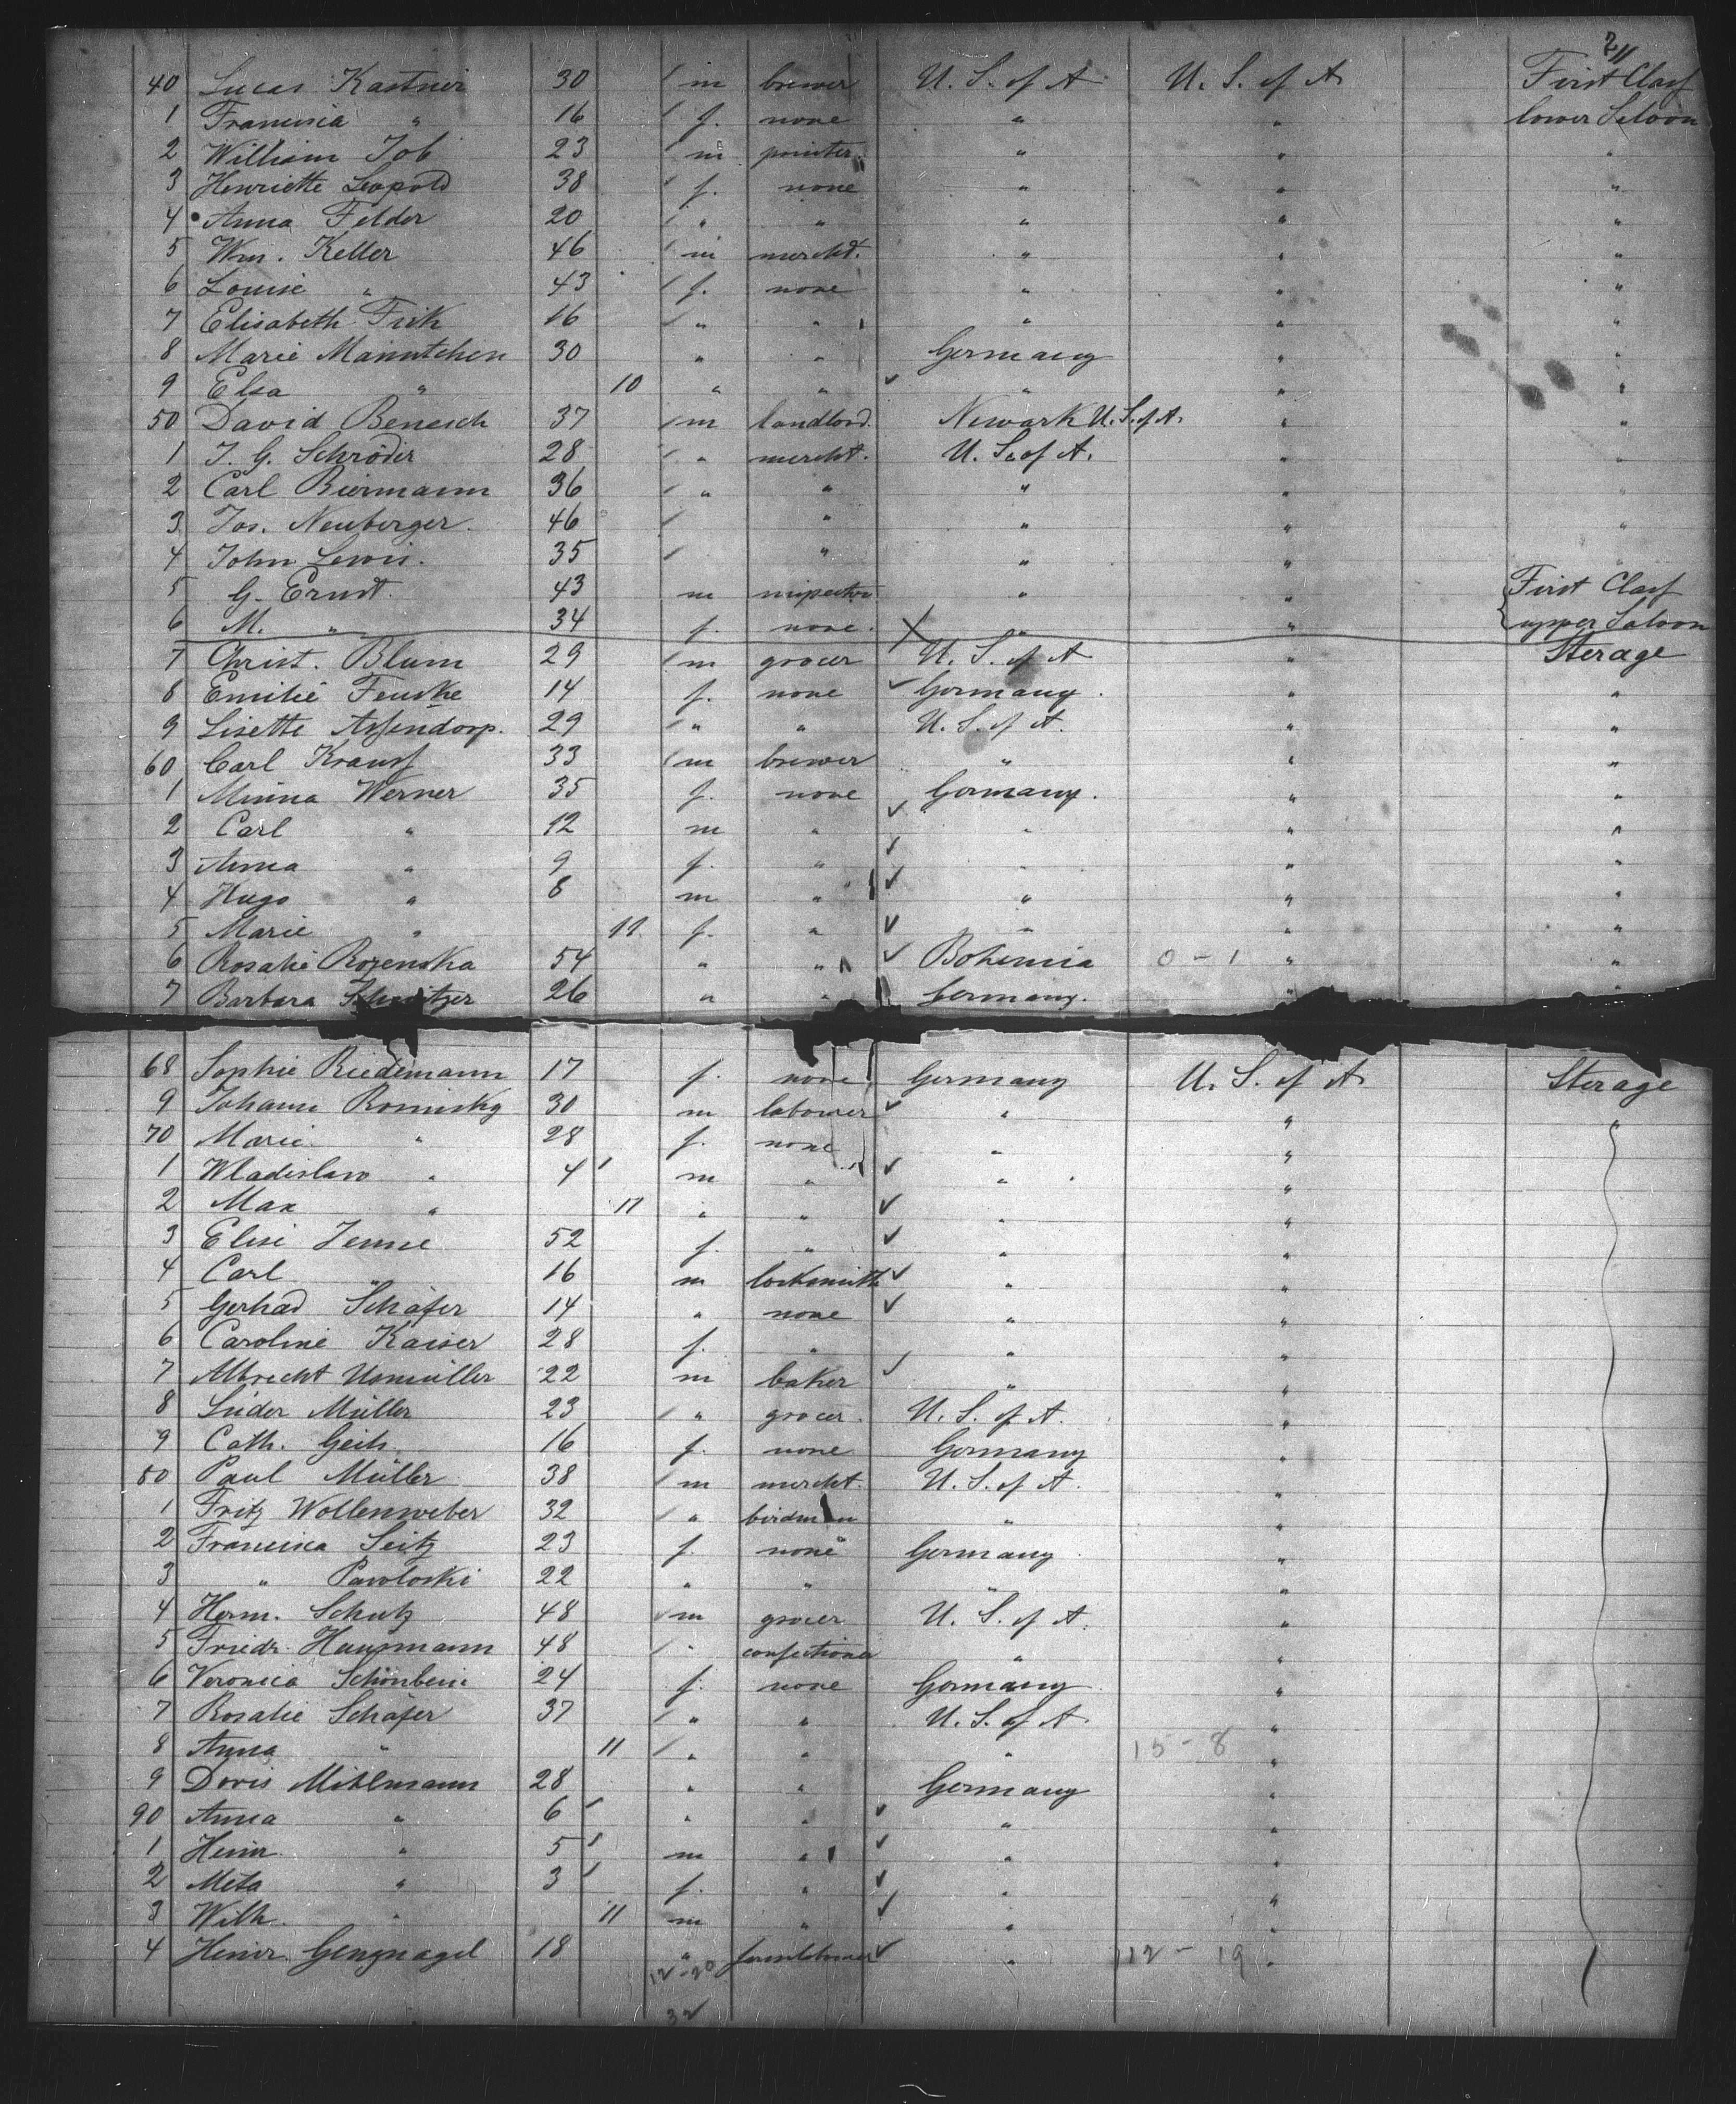 211
40 Lucas Kastner 30 m brewer U. S. of A U. S. of A First Class
1 Francisca " 16 f. none " " lower Saloon
2 William Job 23 m painter. " " "
3 Henriette Leopold 38 f. none " " "
4 Anna Felder 20 " " " " "
5 Wm. Keller 46 m mercht. " " "
6 Louise " 43 f. none " " "
7 Elisabeth Fick 16 " " " " "
8 Marie Männtchen 30 " " Germany " "
9 Elsa " 10 " " " " "
50 David Benesch 37 m landlord. Newark U. S. of A. " "
1 J. G. Schröder 28 " mercht. U. S. of A. " "
2 Carl Biermann 36 " " " " "
3 Jos. Neuberger. 46 " " " "
4 John Lewis. 35 " " " "
5 G. Ernst. 43 m inspector " " First Class
6 M. " 34 f. none. " " upper Saloon
7 Christ. Blum 29 m grocer U. S. of A " Sterage
8 Emilie Fenske 14 f. none Germany. " "
9 Lisette Assendorp. 29 " " U. S. of A. " "
60 Carl Krauss 33 m brewer " " "
1 Minna Werner 35 f. none Germany. " "
2 Carl " 12 m " " " "
3 Anna " 9 f. " " " "
4 Hugo " 8 m " " " "
5 Marie " 11 f. " " " "
6 Rosalie Rozenska 54 " " Bohemia 0 - 1 " "
7 Barbara 26 " " Germany. " "
68 Sophie Riedemann 17 f. none Germany U. S. of A Sterage
9 Johann Rominsky 30 m labourer " " "
70 Marie " 28 f. none " "
1 Wladislaw " 4 m " " "
2 Max " 11 " " " "
3 Elise Jenne 52 f. " " "
4 Carl " 16 m locksmith " "
5 Gerhad Schäfer 14 " none " "
6 Caroline Kaiser 28 f. " " "
7 Albrecht Usmüller 22 m baker " "
8 Lüder Müller 23 " grocer. U. S. of A. "
9 Cath. Geils. 16 f. none Germany "
80 Paul Müller 38 m mercht. U. S. of A. "
1 Fritz Wollenweber 32 " birdman " "
2 Francisca Seitz 23 f. none Germany "
3 " Pawloski 22 " " " "
4 Herm. Schutz 48 m grocer U. S. of A. "
5 Friedr. Hausmann 48 " confectioner " "
6 Veronica Schönbein 24 f. none Germany "
7 Rosalie Schäfer 37 " " U. S. of A. "
8 Anna " 11 " " " 15 - 8 "
9 Doris Mihlmann 28 " " Germany "
90 Anna " 6 " " " "
1 Heinr. " 5 m " " "
2 Meta " 3 f. " " "
3 Wilh. " 11 m " " "
4 Heinr. Gengnagel 18 " farmlabourer " 112 - 19 "
12-20
32